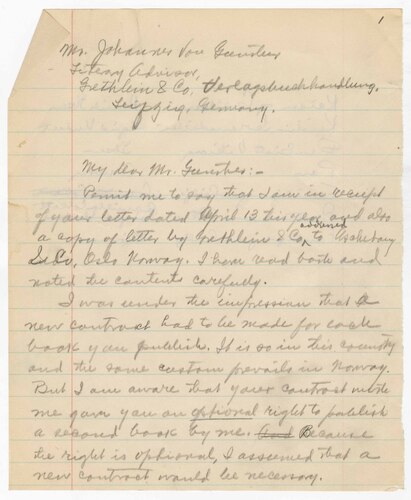 1
Mr. Johannes Von Guenther
Literary Advisor,
Grethlein & Co, Verlagsbuchhandlung,
Leipzig, Germany.
My dear Mr. Guenther:-
Permit me to say that I am in receipt
of your letter dated April 13 this year and also
a copy of letter by Grethlein & Co, addressed to
& Co, Oslo Norway. I have read both and
noted the contents carefully.
I was under the impression that a
new contract had to be made for each
book you publish. It is so in this country
and the same custom prevails in Norway.
But I am aware that your contract with
me gave you an optional right to publish
a second book by me. And Because
the right is optional, I assumed that a
new contract would be necessary.